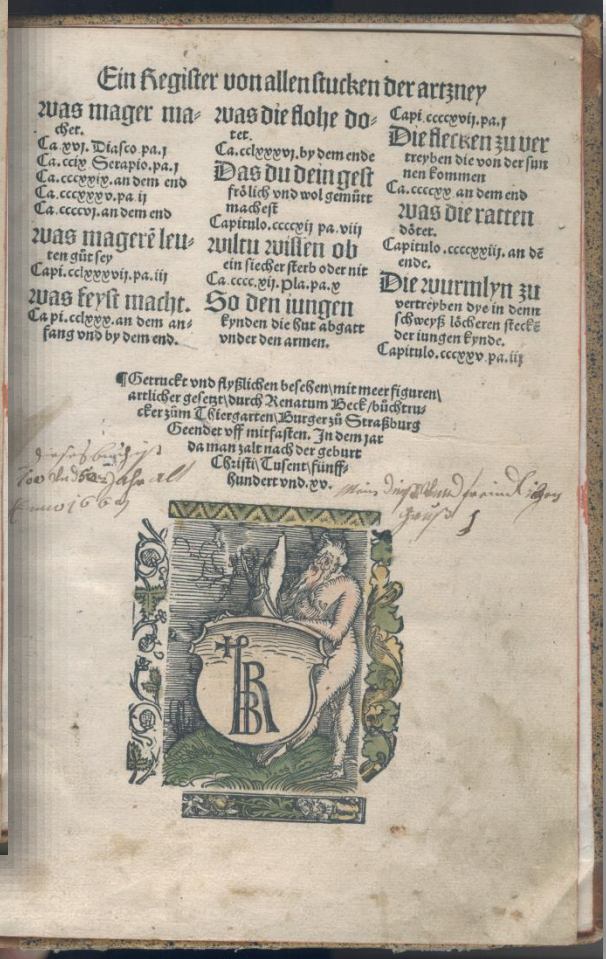 Ein Register von allen stucken der artzney
was mager ma-
chet.
Ca.xvj. Diasco.pa.j
Ca.ccix Serapio.pa.j
Ca.ccccxxix.an dem end
Ca.ccccxxxv.pa ij
Ca.ccccvj.an dem end
was magerē leu-
ten gůt sey
Capi.cclxxxvij.pa.iij
was feyst macht.
Capi.cclxxx.an dem an-
fang vnd by dem end.
was die flohe do-
tet.
Ca.cclxxxvj.by dem ende
Das du dein gest
frölich vnd wol gemütt
machest
Capitulo.ccccxij pa.viij
wiltu wissen ob
ein siecher sterb oder nit
Ca.cccc.xij.pla.pa.x
So den iungen
kynden die hut abgatt
vnder den armen.
Capi.ccccxvij.pa.j
Die flecken zu ver
treyben die von der sun
nen kommen
Ca.ccccxx an dem end
was die ratten
dötet.
Capitulo.ccccxxiij.an dē
ende.
Die wurmlyn zu
vertreyben dye in denn
schweyß löcheren steckē
der iungen kynde.
Capitulo.cccxxv.pa.iij
¶Getruckt vnd flyßlichen besehen\mit meer figuren\
artlicher gesetzt\durch Renatum Beck/büchtru-
cker zům Thiergarten\Burger zů Straßburg
Geendet vff mitfasten. In dem jar
da man zalt nach der geburt
Christi\Tusent\fünff-
hundert vnd.xv.
dieses buch ist
Jahr alt
Anno 166
RB